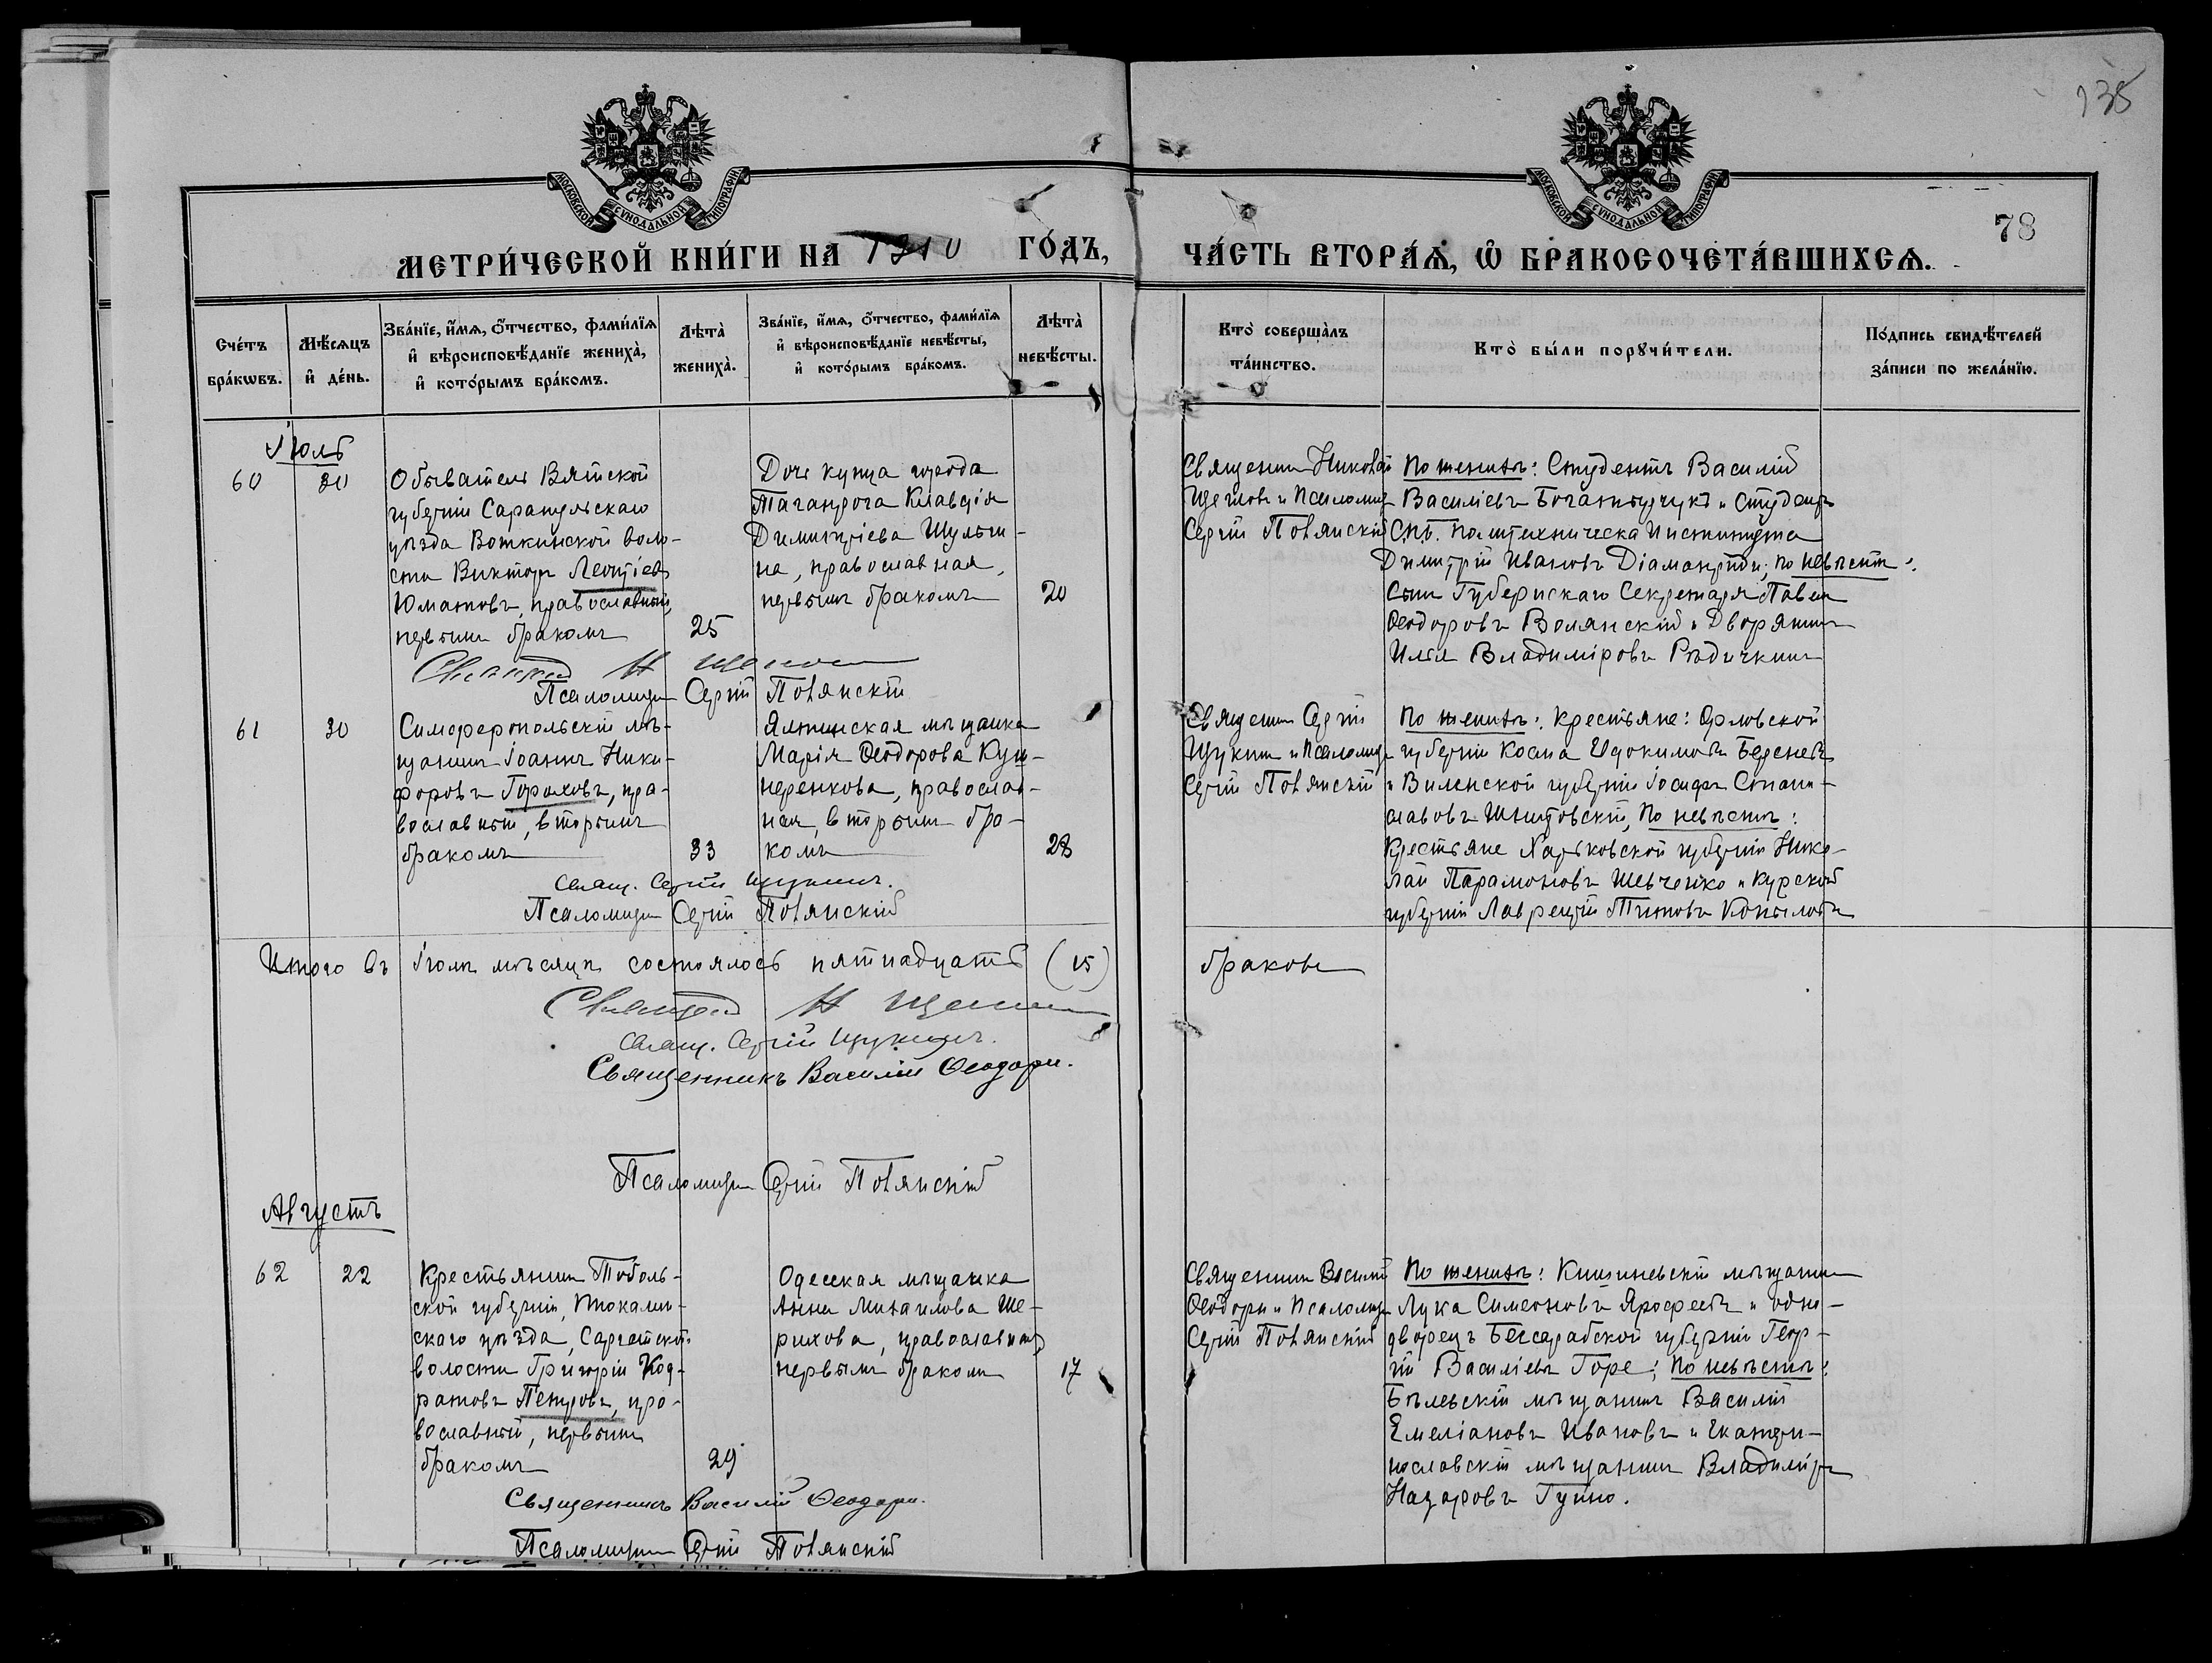 135
78
МОСКОВСКОЙ СѴНОДАЛЬНОЙ ТИПОГРАФІИ
МОСКОВСКОЙ СѴНОДАЛЬНОЙ ТИПОГРАФІИ
МЕТРИ́ЧЕСКОЙ КНИ́ГИ НА 1910 ГО́ДЪ,
ЧА́СТЬ ВТОРА́Ѧ, Ѡ҆ БРАКОСОЧЕТА́ВШИХСѦ.
Сче́тъ
бра́кѡвъ.
Мѣ́сѧцъ
и҆ де́нь.
Зва́нїе, и҆́мѧ, ѻ҆́тчество, фами́лїѧ
и҆ вѣроисповѣ́данїе жениха̀,
и҆ кото́рымъ бра́комъ.
Лѣта̀
жениха̀.
Зва́нїе, и҆́мѧ, ѻ҆́тчество, фами́лїѧ
и҆ вѣроисповѣ́данїе невѣ́сты,
и҆ кото́рымъ бра́комъ.
Лѣта̀
невѣ́сты.
Кто̀ соверша̀лъ
та́инство.
Кто̀ бы́ли порꙋчи́тели.
По́дпись свидѣ́телей
за́писи по жела́нїю.
Іюль
60
30
Обыватель Вятской
губерніи Сарапульскаго
уѣзда Воткинской воло-
сти Викторъ Леонтіевъ
Юматовъ, православный,
первымъ бракомъ
25
Дочь купца города
Таганрога Клавдія
Димитріева Шульги-
на, православная,
первымъ бракомъ
20
Священникъ Николай
Щегловъ и Псаломщ.
Сергій Повянскій
По женихѣ: Студентъ Василій
Василіевъ и Студентъ
С.П.Б. Политехническа Института
Димитрій Ивановъ Діамантиди; по невѣстѣ:
Сынъ Губернскаго Секретаря Павелъ
Ѳеодоровъ Волянскій и Дворянинъ
Илья Владиміровъ Рѣдичкинъ
Псаломщикъ Сергій Повянскій
61
30
Симферопольскій мѣ-
щанинъ Іоаннъ Ники-
форовъ Гороховъ, пра-
вославный, вторымъ
бракомъ
33
Ялтинская мѣщанка
Марія Ѳеодорова Куш-
неренкова, православ-
ная, вторымъ бра-
комъ
28
Священникъ Сергій
Щукинъ и Псаломщ.
Сергій Повянскій
По женихѣ: Крестьяне: Орловской
губерніи Косма Евдокимовъ Береневъ
и Виленской губерніи Іосифъ Стани-
славовъ, По невѣстѣ:
Крестьяне Харьковской губерніи Нико-
лай Парамоновъ Шевченко и Курской
губерніи Лаврентій Титовъ Копыловъ
Свящ. Сергій Щукинъ.
Псаломщикъ Сергій Повянскій
Итого въ Іюлѣ мѣсяцѣ состоялось пятнадцать (15) браковъ
Свящ. Сергій Щукинъ.
Священникъ Василій Ѳеодори.
Псаломщикъ Сергій Повянскій
Августъ
62
22
Крестьянинъ Тоболь-
ской губерніи, Тюкалин-
скаго уѣзда, Саргатской
волости Григорій Код-
ратовъ Петровъ, пра-
вославный, первымъ
бракомъ
29
Одесская мѣщанка
Анна Михаилова Ше-
рихова, православная,
первымъ бракомъ
17
Священникъ Василій
Ѳеодори и Псаломщ.
Сергій Повянскій
По женихѣ: Кишиневскій мѣщанинъ
Лука Симеоновъ и одно-
дворецъ Бессарабской губерніи Геор-
гій Василіевъ Горе; По невѣстѣ:
Бѣлевскій мѣщанинъ Василій
Емеліановъ Ивановъ и Екатери-
нославскій мѣщанинъ Владиміръ
Назаровъ.
Священникъ Василій Ѳеодори.
Псаломщикъ Сергій Повянскій